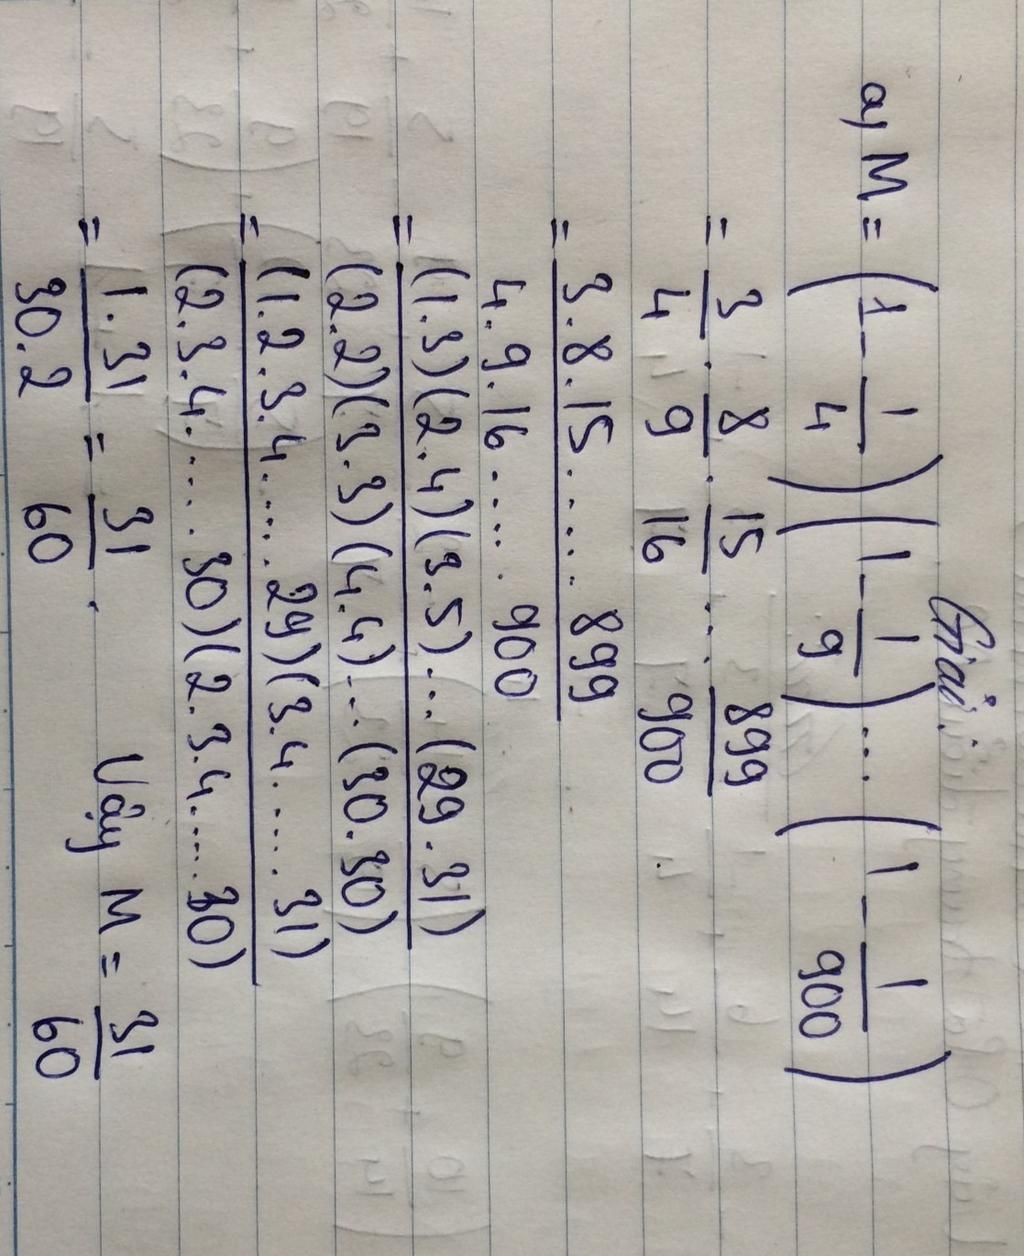 Giải:
a) M = (1 - 1/4)(1 - 1/9) ... (1 - 1/900)
= 3/4 . 8/9 . 15/16 ..... 899/900
= 3.8.15...... 899 / 4.9.16...... 900
= (1.3)(2.4)(3.5)...(29.31) / (2.2)(3.3)(4.4)...(30.30)
= (1.2.3.4..... 29)(3.4..... 31) / (2.3.4..... 30)(2.3.4..... 30)
= 1.31 / 30.2 = 31/60 .
Vậy M = 31/60